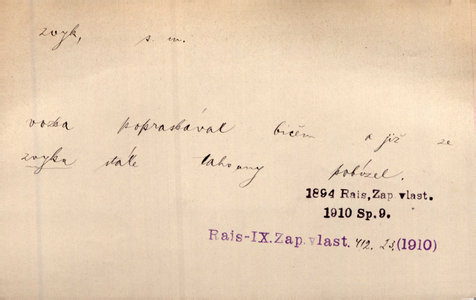 zvyk, s. m.
vozka popraskával bičem a již ze
zvyku stále tahouny pobízel.
1894 Rais, Zap. vlast.
1910 Sp. 9.
Rais-IX. Zap. vlast. 412. (1910)